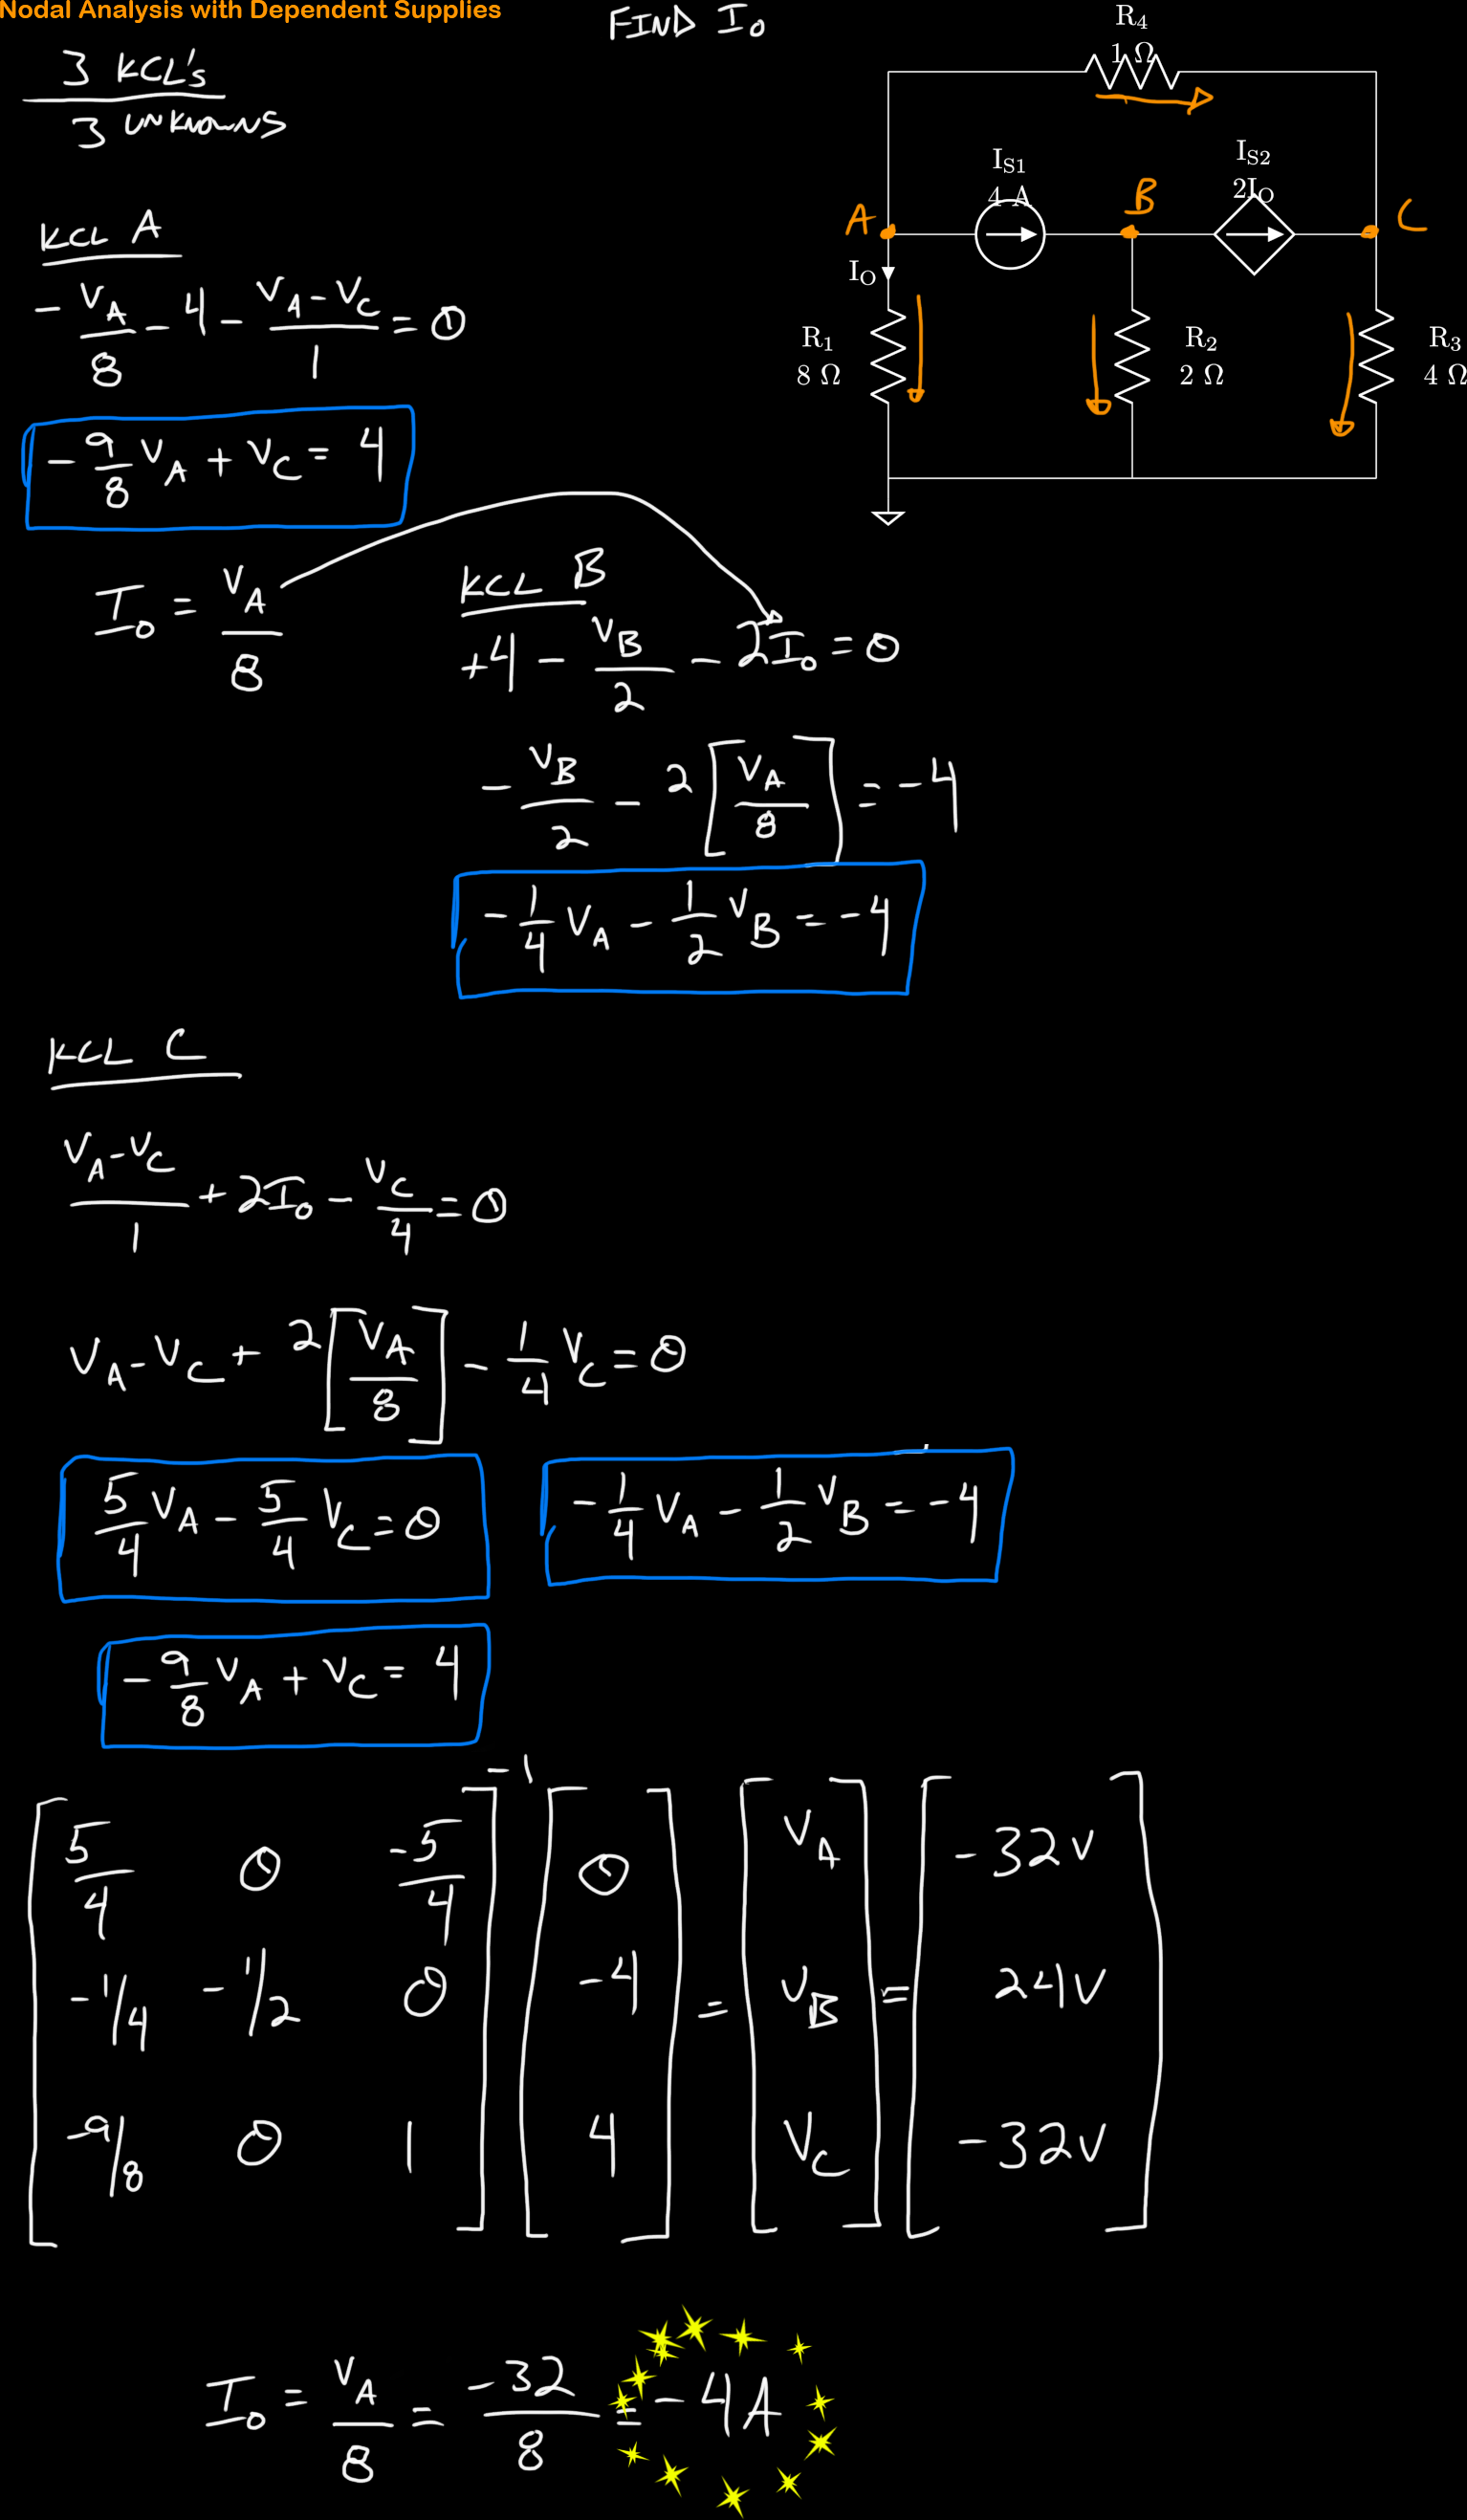 Nodal Analysis with Dependent Supplies
FIND I₀
3 KCL's
3 UNKNOWNS
R₄
1 Ω
I_S1
4 A
I_S2
2I_O
A
B
C
I_O
R₁
8 Ω
R₂
2 Ω
R₃
4 Ω
KCL A
-V_A/8 - 4 - (V_A - V_C)/1 = 0
-9/8 V_A + V_C = 4
I₀ = V_A/8
KCL B
+4 - V_B/2 - 2I₀ = 0
-V_B/2 - 2[V_A/8] = -4
-1/4 V_A - 1/2 V_B = -4
KCL C
(V_A - V_C)/1 + 2I₀ - V_C/4 = 0
V_A - V_C + 2[V_A/8] - 1/4 V_C = 0
5/4 V_A - 5/4 V_C = 0
-1/4 V_A - 1/2 V_B = -4
-9/8 V_A + V_C = 4
[5/4 0 -5/4]⁻¹ [0] [V_A] [-32V]
[-1/4 -1/2 0] [-4] = [V_B] = [24V]
[-9/8 0 1] [4] [V_C] [-32V]
I₀ = V_A/8 = -32/8 = -4A